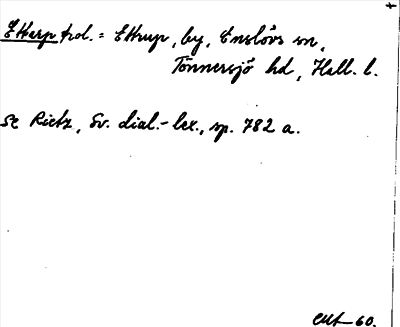 Ettarp trol. = Ettrup, by, Enslövs sn,
Tönnersjö hd, Hall. l.
se Rietz, Sv. dial.-lex., sp. 782 a.
60.